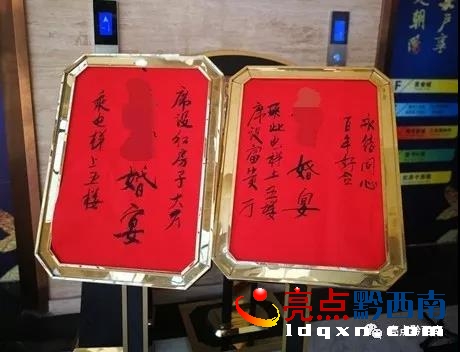 席设红房子大厅
婚宴
乘电梯上五楼
永结同心
百年好合
婚宴
乘此电梯上五楼
席设富贵厅
亮点黔西南
ldqxn.com